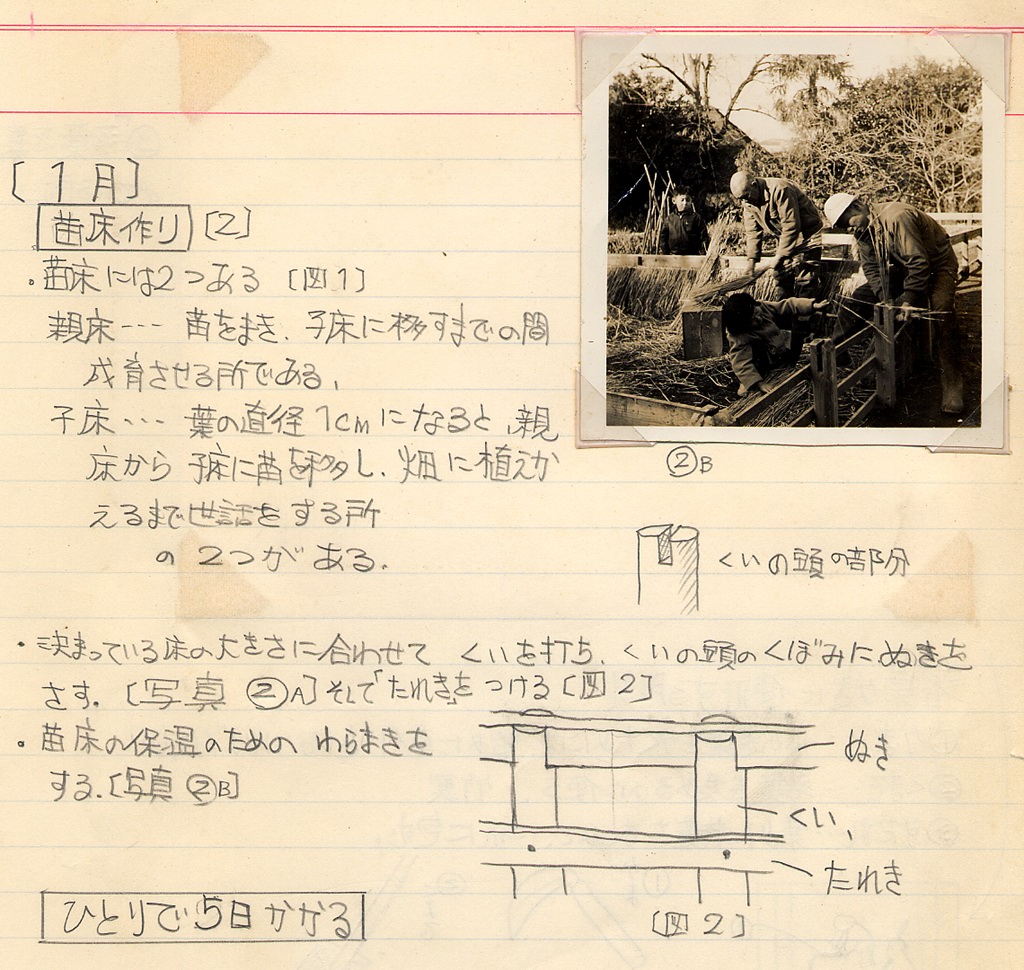 [1月]
苗床作り [2]
・苗床には2つある [図1]
親床… 苗をまき、子床に移すまでの間
成育させる所である、
子床… 葉の直径1cmになると、親
床から子床に苗を移し、畑に植えか
えるまで世話をする所
の2つがある.
②B
くいの頭の部分
・決まっている床の大きさに合わせて くいを打ち、くいの頭のくぼみにぬきを
さす. [写真②A]そして「たれき」をつける[図2]
・苗床の保温のための わらまきを
する.[写真②B]
ぬき
くい、
たれき
[図2]
ひとりで5日かかる